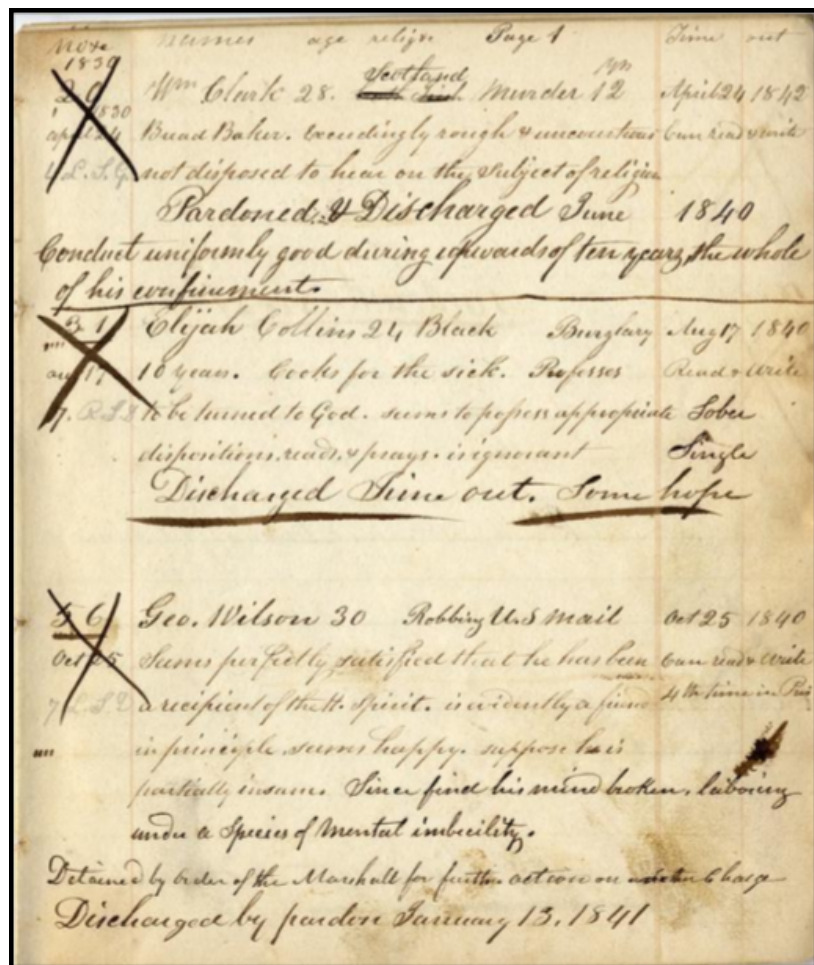 Nove names age relign Page 1 Time out
1839
29 Wm Clark 28. Scotland Murder 12 yrs April 24 1842
1830
april 24 Bread Baker. Exceedingly rough & uncourteous Can read & write
L. S. G. not disposed to hear on the subject of religion
Pardoned & Discharged June 1840
Conduct uniformly good during upwards of ten years, the whole
of his confinement.
31 Elijah Collins 24 Black Burglary Aug 17 1840
aug 17 10 years. Cooks for the sick. Professes Read & Write
7. to be turned to God. seems to possess appropriate Sober
dispositions, reads, & prays. is ignorant Single
Discharged Time out. Some hope
56 Geo. Wilson 30 Robbing U.S mail Oct 25 1840
Oct 25 Seems perfectly satisfied that he has been Can read & write
7 a recipient of the H. Spirit. is evidently a 4th time in Pris
in principle seems happy. suppose he is
partially insane. Since find his mind broken, laboring
under a Species of Mental imbecility.
Detained by order of the Marshall for further action on another Charge
Discharged by pardon January 13, 1841